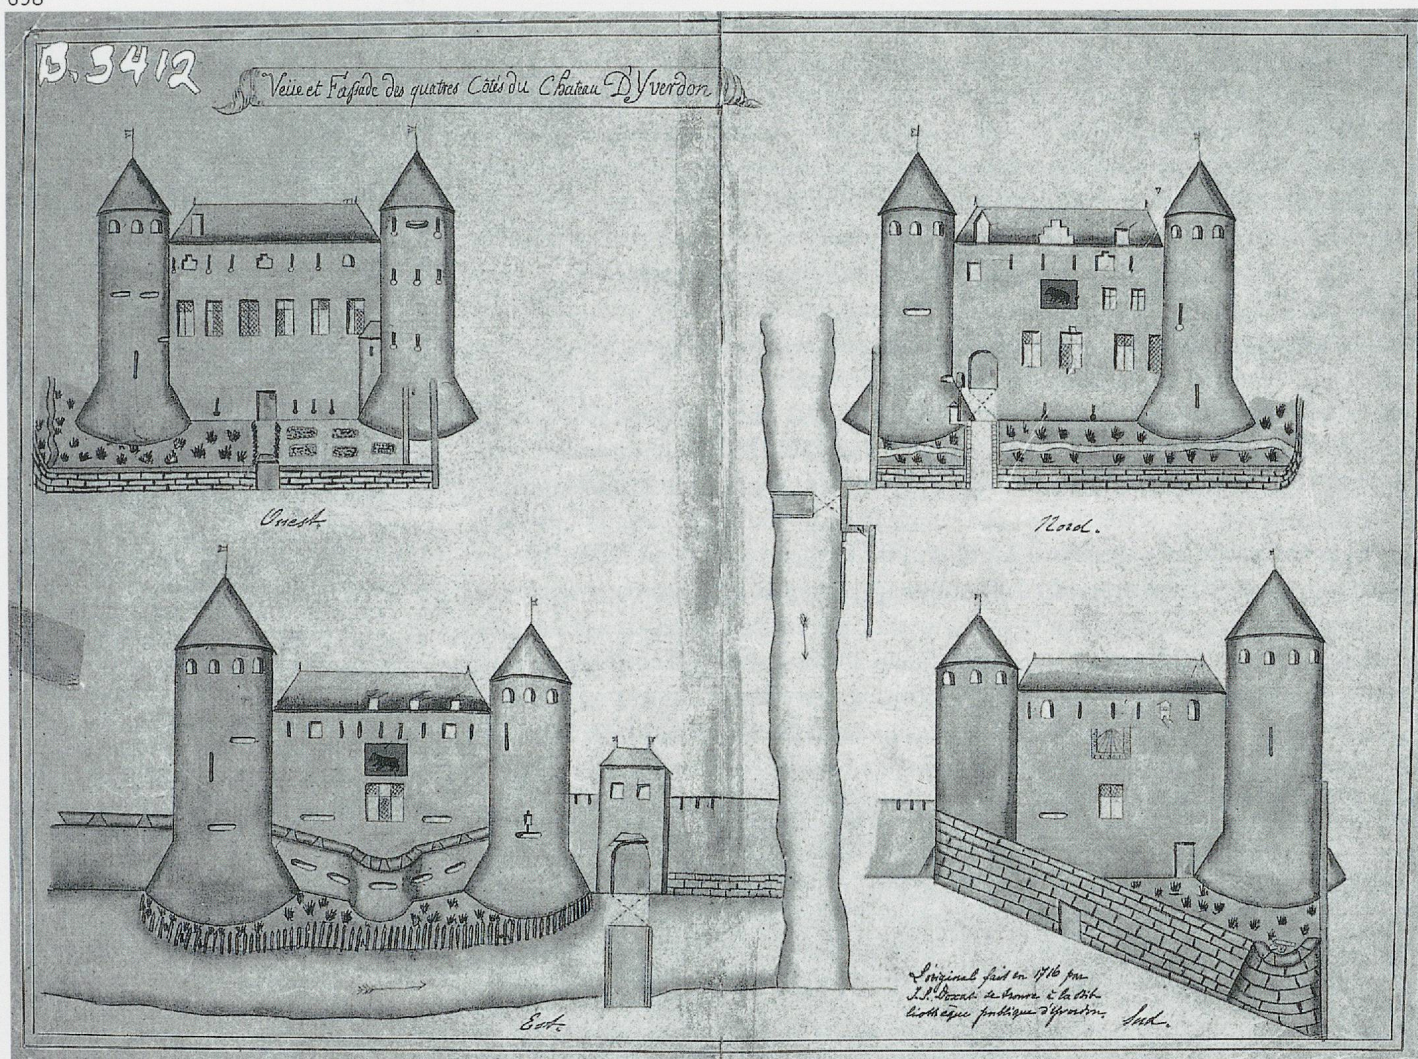 698
B.3412
Veüe et Façade des quatres Côtés du Chateau D'Yverdon
Ouest.
Nord.
L'original fait en 1716 par
J. S. Doxat se trouve à la bib-
liothèque publique d'Yverdon.
Est.
Sud.